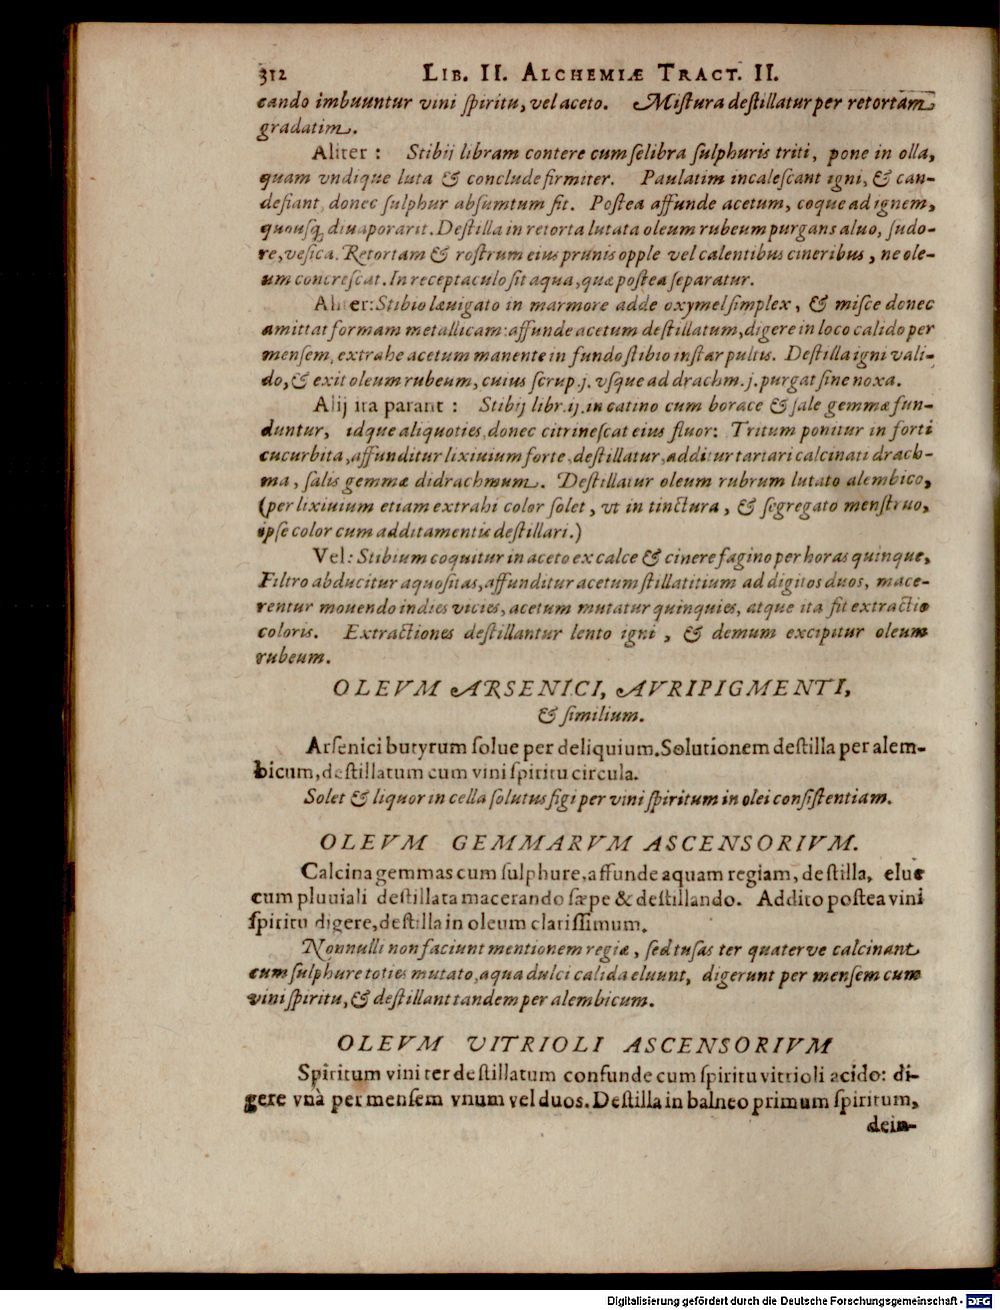 312 LIB. II. ALCHEMIÆ TRACT. II.
cando imbuuntur vini ſpiritu, vel aceto. Miſtura deſtillatur per retortam
gradatim.
Aliter: Stibij libram contere cum ſelibra ſulphuris triti, pone in olla,
quam vndique luta & conclude firmiter. Paulatim incaleſcant igni, & can-
defiant, donec ſulphur abſumtum ſit. Poſtea affunde acetum, coque ad ignem,
quouſq; diuaporarit. Deſtilla in retorta lutata oleum rubeum purgans aluo, ſudo-
re, veſica. Retortam & roſtrum eius prunis opple vel calentibus cineribus, ne ole-
um concreſcat. In receptaculo ſit aqua, quæ poſtea ſeparatur.
Aliter: Stibio læuigato in marmore adde oxymel ſimplex, & miſce donec
amittat formam metallicam: affunde acetum deſtillatum, digere in loco calido per
menſem, extrahe acetum manente in fundo ſtibio inſtar pultis. Deſtilla igni vali-
do, & exit oleum rubeum, cuius ſcrup. j. vſque ad drachm. j. purgat ſine noxa.
Alij ita parant: Stibij libr. ij. in catino cum borace & ſale gemmæ fun-
duntur, idque aliquoties, donec citrineſcat eius fluor: Tritum ponitur in forti
cucurbita, affunditur lixiuium forte, deſtillatur, additur tartari calcinati drach-
ma, ſalis gemmæ didrachmum. Deſtillatur oleum rubrum lutato alembico,
(per lixiuium etiam extrahi color ſolet, vt in tinctura, & ſegregato menſtruo,
ipſe color cum additamentis deſtillari.)
Vel: Stibium coquitur in aceto ex calce & cinere fagino per horas quinque,
Filtro abducitur aquoſitas, affunditur acetum ſtillatitium ad digitos duos, mace-
rentur mouendo indies vicies, acetum mutatur quinquies, atque ita fit extractio
coloris. Extractiones deſtillantur lento igni, & demum excipitur oleum
rubeum.
OLEVM ARSENICI, AVRIPIGMENTI,
& ſimilium.
Arſenici butyrum ſolue per deliquium. Solutionem deſtilla per alem-
bicum, deſtillatum cum vini ſpiritu circula.
Solet & liquor in cella ſolutus figi per vini ſpiritum in olei conſiſtentiam.
OLEVM GEMMARVM ASCENSORIVM.
Calcina gemmas cum ſulphure, affunde aquam regiam, deſtilla, elue
cum pluuiali deſtillata macerando ſæpe & deſtillando. Addito poſtea vini
ſpiritu digere, deſtilla in oleum clariſſimum.
Nonnulli non faciunt mentionem regiæ, ſed tuſas ter quaterve calcinant
cum ſulphure toties mutato, aqua dulci calida eluunt, digerunt per menſem cum
vini ſpiritu, & deſtillant tandem per alembicum.
OLEVM VITRIOLI ASCENSORIVM
Spiritum vini ter deſtillatum confunde cum ſpiritu vitrioli acido: di-
gere vnà per menſem vnum vel duos. Deſtilla in balneo primum ſpiritum,
dein-
Digitalisierung gefördert durch die Deutsche Forschungsgemeinschaft - DFG